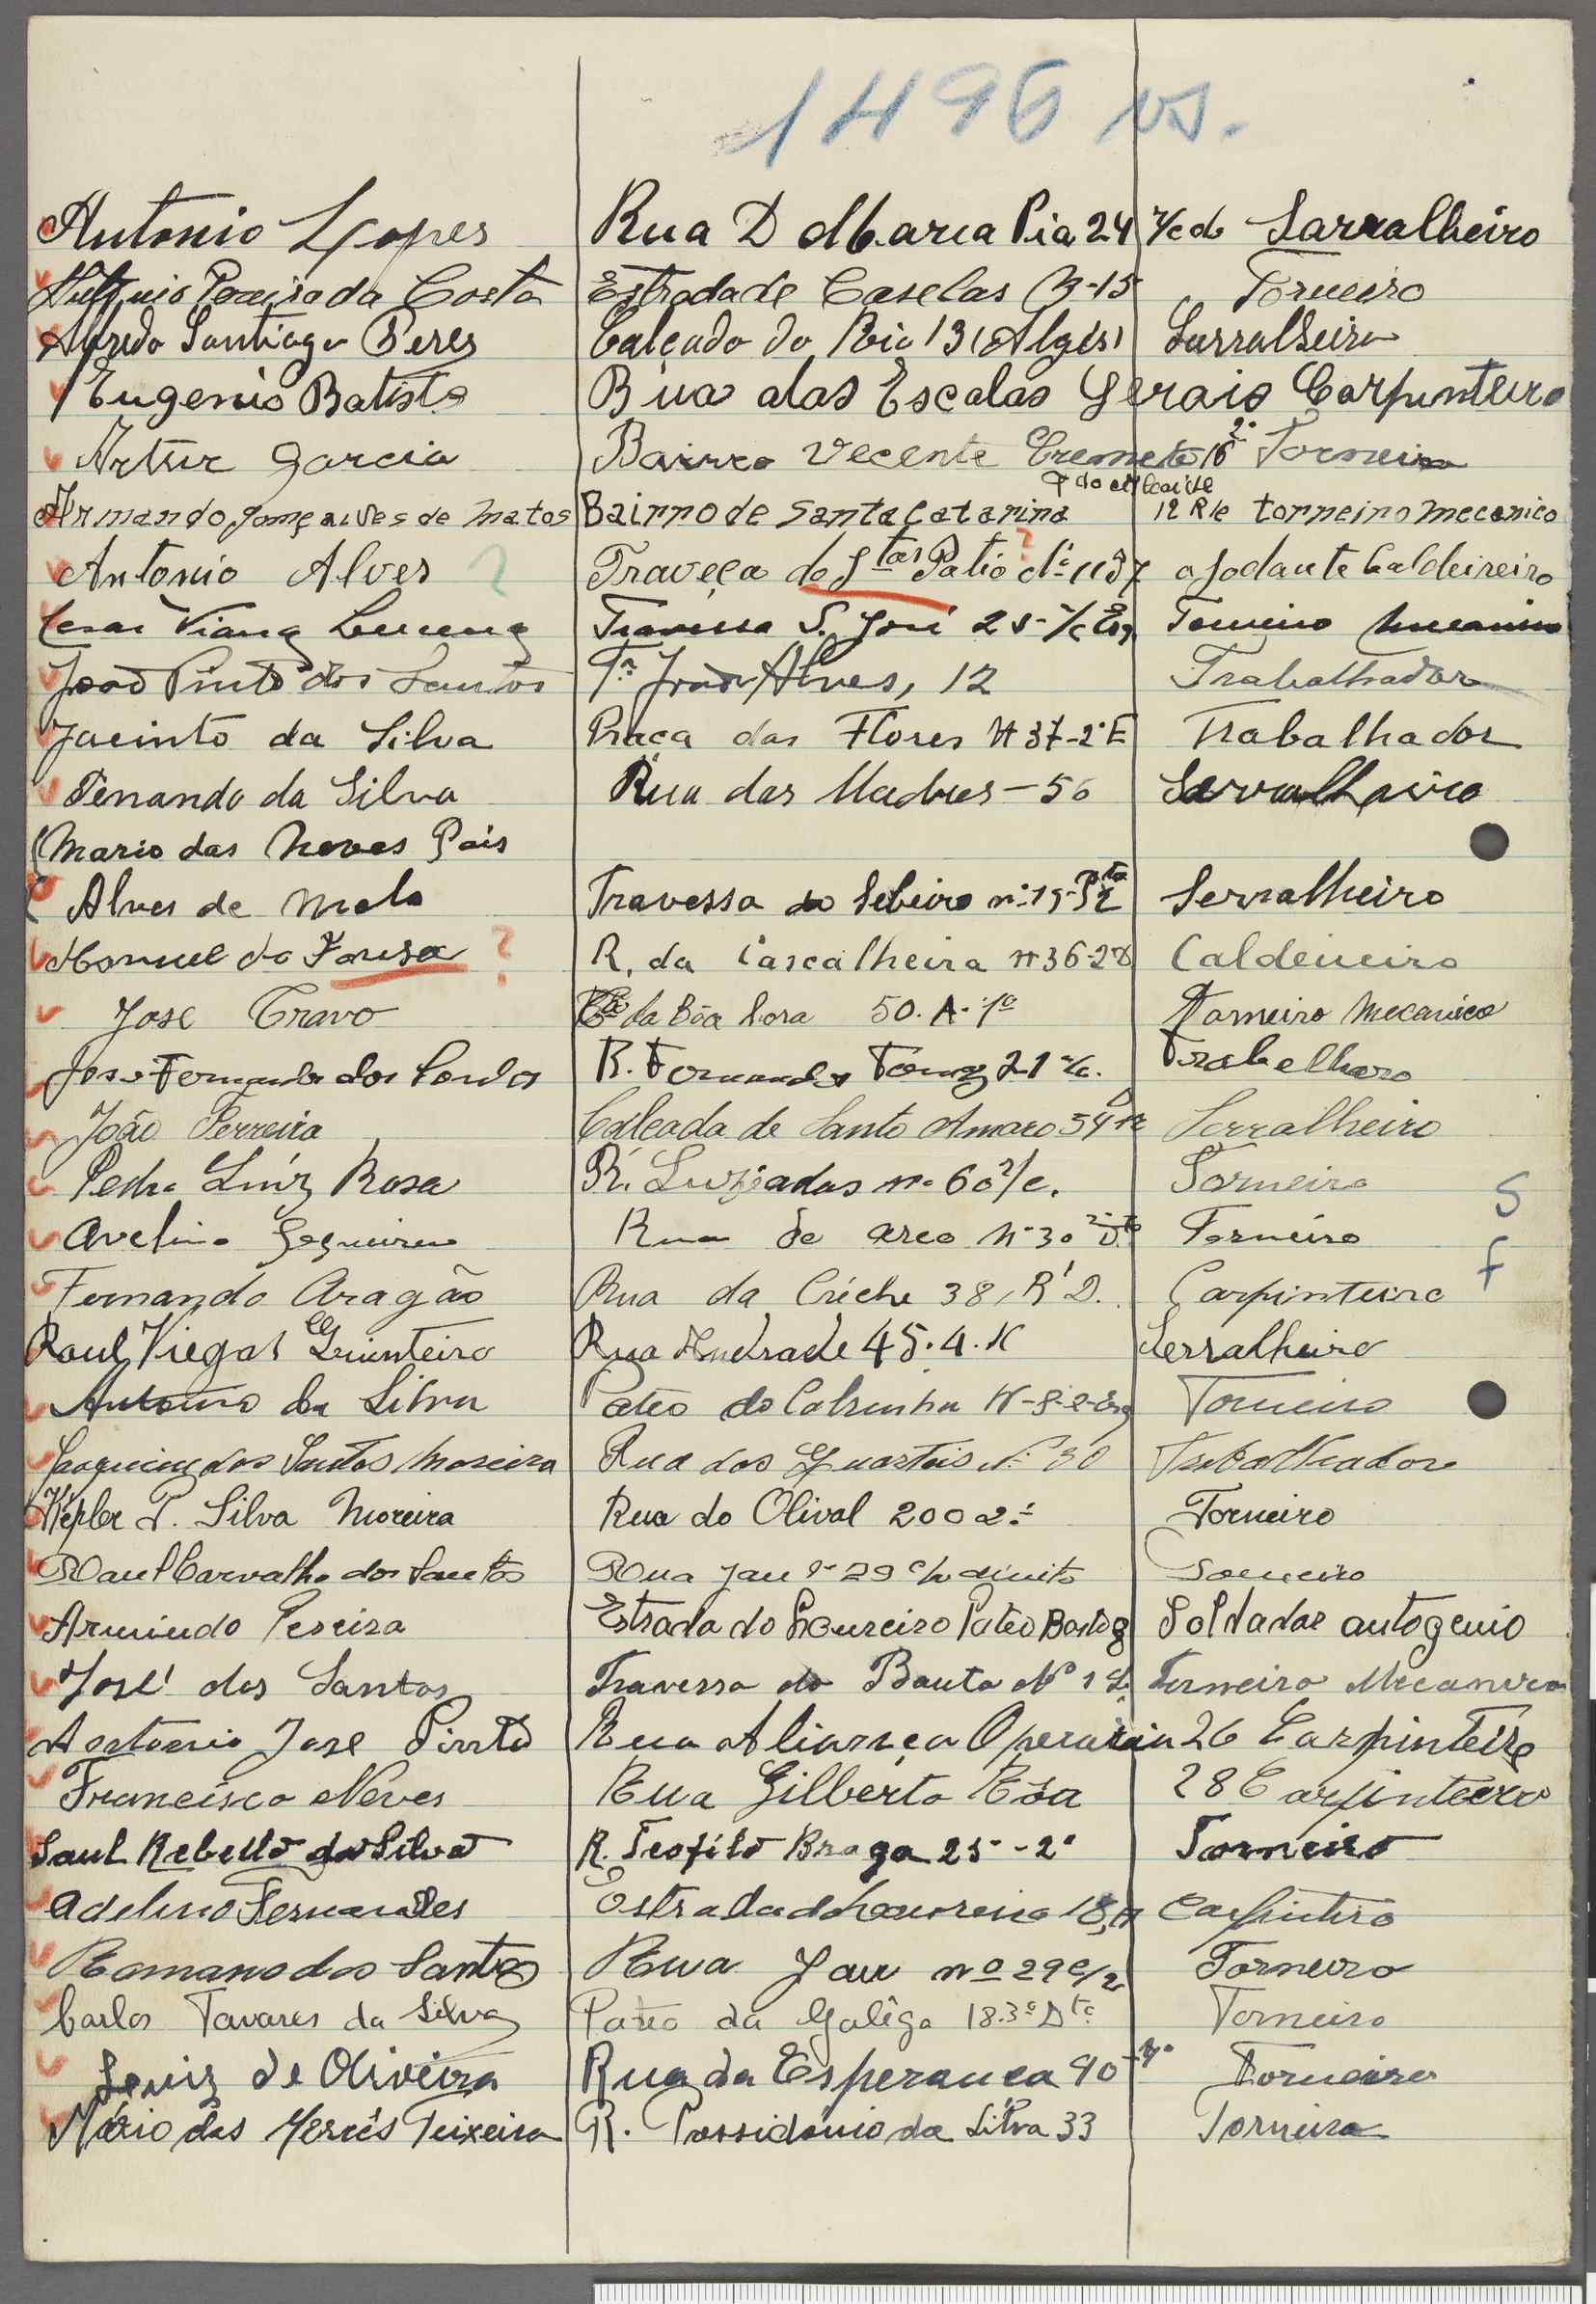 1496 vs.
Antonio Lopes Rua D Maria Pia 24 r/c do Sarralheiro
Antonio Pereira da Costa Estrada de Caselas 15 Torneiro
Alfredo Santiago Peres Calçada do Rio 13 (Algés) Sarralheiro
Eugenio Batista Rua das Escolas Gerais Carpinteiro
Artur Garcia Bairro Vecente 16 2º Torneiro
Armando Gonçalves de Matos Bairro de Santa Catarina 12 R/c torneiro mecanico
Antonio Alves ? Traveça do Stos Patio ? ajodante Caldeireiro
Cesar Viana Travessa S. José 25-r/c Esq Torneiro Mecanico
João Pinto dos Santos Tª João Alves, 12 Trabalhador
Jacinto da Silva Praça das Flores Nº 37-2º E Trabalhador
Fenando da Silva Rua das Madres - 50 Serralheiro
Mario das Neves Pais
Alves de Melo Travessa do Sebeiro nº 15- Serralheiro
Manuel da Fousa ? R. da Cascalheira nº 36-2º Caldeireiro
Jose Cravo da Bôa Hora 50. A. 1º Torneiro Mecanico
Jose Fernandes dos R. Fernandes Tomaz 21 r/c. Trabelharo
João Ferreira Calçada de Santo Amaro 54 Serralheiro
Pedro Luiz Rosa R. Luziadas nº 60 r/c. Torneiro S
Avelino Sequeira Rua do arco Nº 30 2º Dto Torneiro
Fernando Aragão Rua da Créche 38, R D. Carpinteiro f
Raul Viegas Quinteiro Rua Andrade 45.4.º Serralheiro
Antonio da Silva Pateo do Cabrinha Nº Torneiro
Joaquim dos Santos Moreira Rua dos Quarteis Nº 30 Trabalhador
Képler P. Silva Moreira Rua do Olival 200 2.º Torneiro
Raul Carvalho dos Santos Rua Jau nº 29 c/v direito Torneiro
Armindo Pereira Estrada do Loureiro Pateo Bastos 8 Soldador autogenio
José dos Santos Travessa do Bauto Nº 1 Torneiro Mecanico
Antonio Jose Pinto Rua Aliança Operaria 26 Carpinteiro
Francisco Neves Rua Gilberto Rôla 28 Carpinteiro
Saul Rebello da Silva R. Teofilo Braga 25 - 2º Torneiro
Adelino Fernandes Estrada do Loureiro 18 Carpintiro
Romano dos Santos Rua Jau nº 29 c/v Torneiro
Carlos Tavares da Silva Pateo da Galêga 18.3º Dtº Torneiro
Luiz de Oliveira Rua da Esperança 90 Torneiro
Mário das Mercês Teixeira R. Possidonio da Silva 33 Torneiro